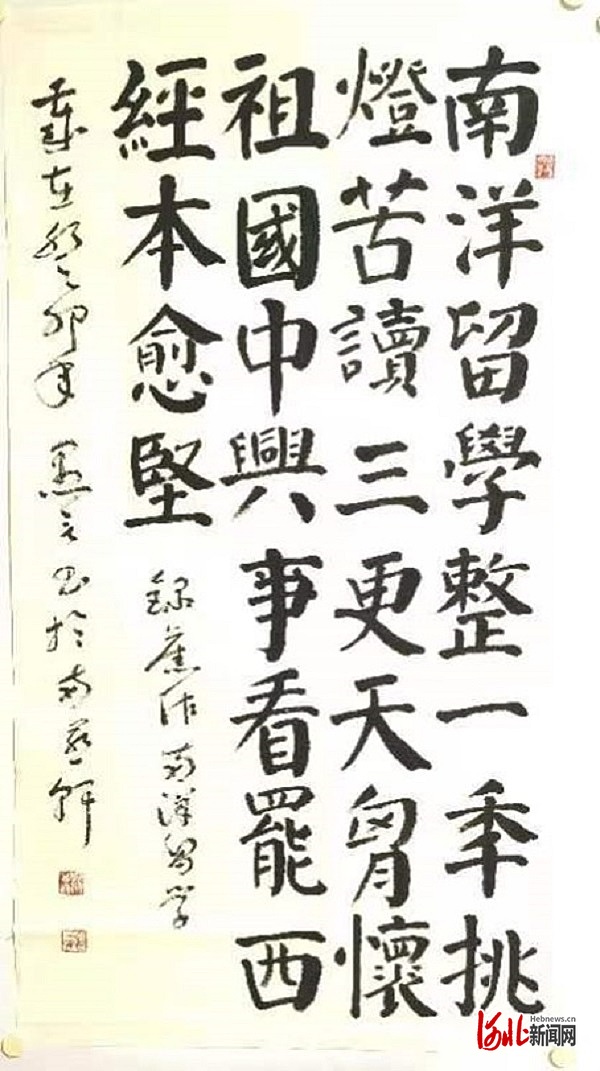 南洋留學整一秊挑
燈苦讀三更天胷懷
祖國中興事看罷西
經本愈堅
錄舊作南洋留學
歲在癸卯年 书於南軒
Hebnews.cn
河北新闻网